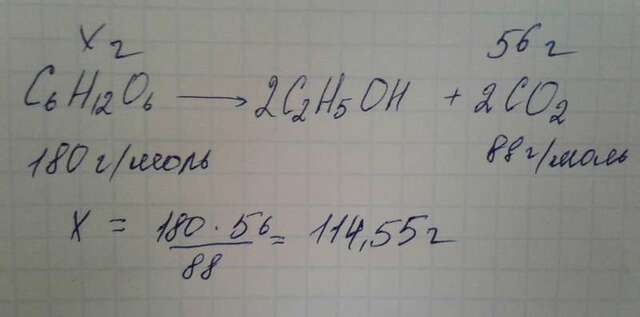 x г 56 г
C₆H₁₂O₆ → 2C₂H₅OH + 2CO₂
180 г/моль 88 г/моль
x = 180 · 56 / 88 = 114,55 г